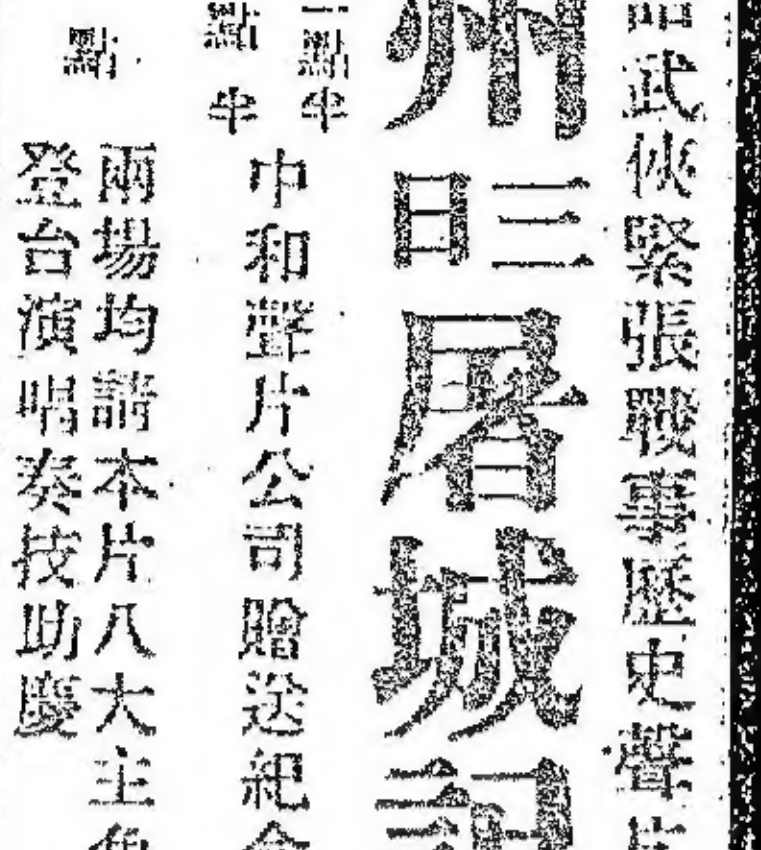 武俠緊張戰事歷史聲片
州三日屠城記
點半
點半
中和聲片公司贈送紀念
點
兩場均請本片八大主角
登台演唱奏技助慶